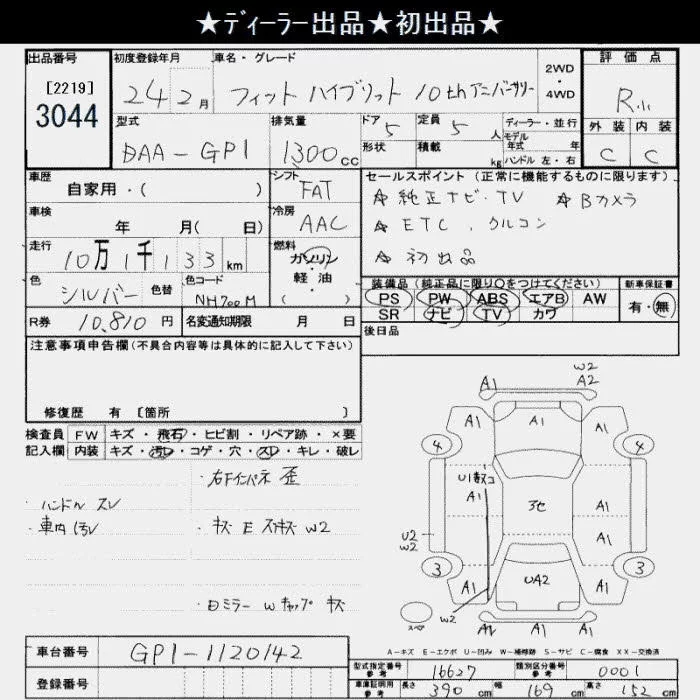 ★ディーラー出品★初出品★
出品番号 初度登録年月 車名・グレード 2WD・4WD 評価点
[2219]
3044
24 2月 フィット ハイブリット 10thアニバーサリー R小
型式 排気量 ドア 定員 ディーラー・並行 外装 内装
DAA-GP1 1300cc 5 5人 モデル年式 年
形状 積載 kg ハンドル 左・右 C C
車歴 シフト セールスポイント(正常に機能するものに限ります)
自家用・( ) FAT ☆純正ナビ・TV ☆Bカメラ
車検 冷房 ☆ETC、クルコン
年 月( 日) AAC
走行 燃料 ☆初出品
10万1千133km ガソリン・軽油( )
色 色替 色コード 装備品(純正品に限り○をつけてください) 新車保証書
シルバー NH700M PS PW ABS エアB AW 有・無
SR ナビ TV カワ
R券 10,810円 名変通知期限 月 日 後日品
注意事項申告欄(不具合内容等は具体的に記入して下さい)
修復歴 有 [箇所 ]
検査員 FW キズ・飛石・ヒビ割・リペア跡・×要
記入欄 内装 キズ・汚レ・コゲ・穴・スレ・キレ・破レ
・右Fインパネ 歪
・ハンドル スレ
・車内汚レ ・キズ E スリキズ W2
・日ミラー Wキャップ キズ
A1 W2
A2
A1 A1 A1
4 4
U1
A1 3色 A1
U2
W2 A1
3 3
A1 UA2 A1
W2
スペア A1 A1
A-キズ E-エクボ U-凹み W-補修跡 S-サビ C-腐食 XX-交換済
車台番号 GP1-1120142
登録番号
型式指定番号 参考 16627 類別区分番号 参考 0001
車庫証明用 参考 長さ 390cm 幅 169cm 高さ 152cm